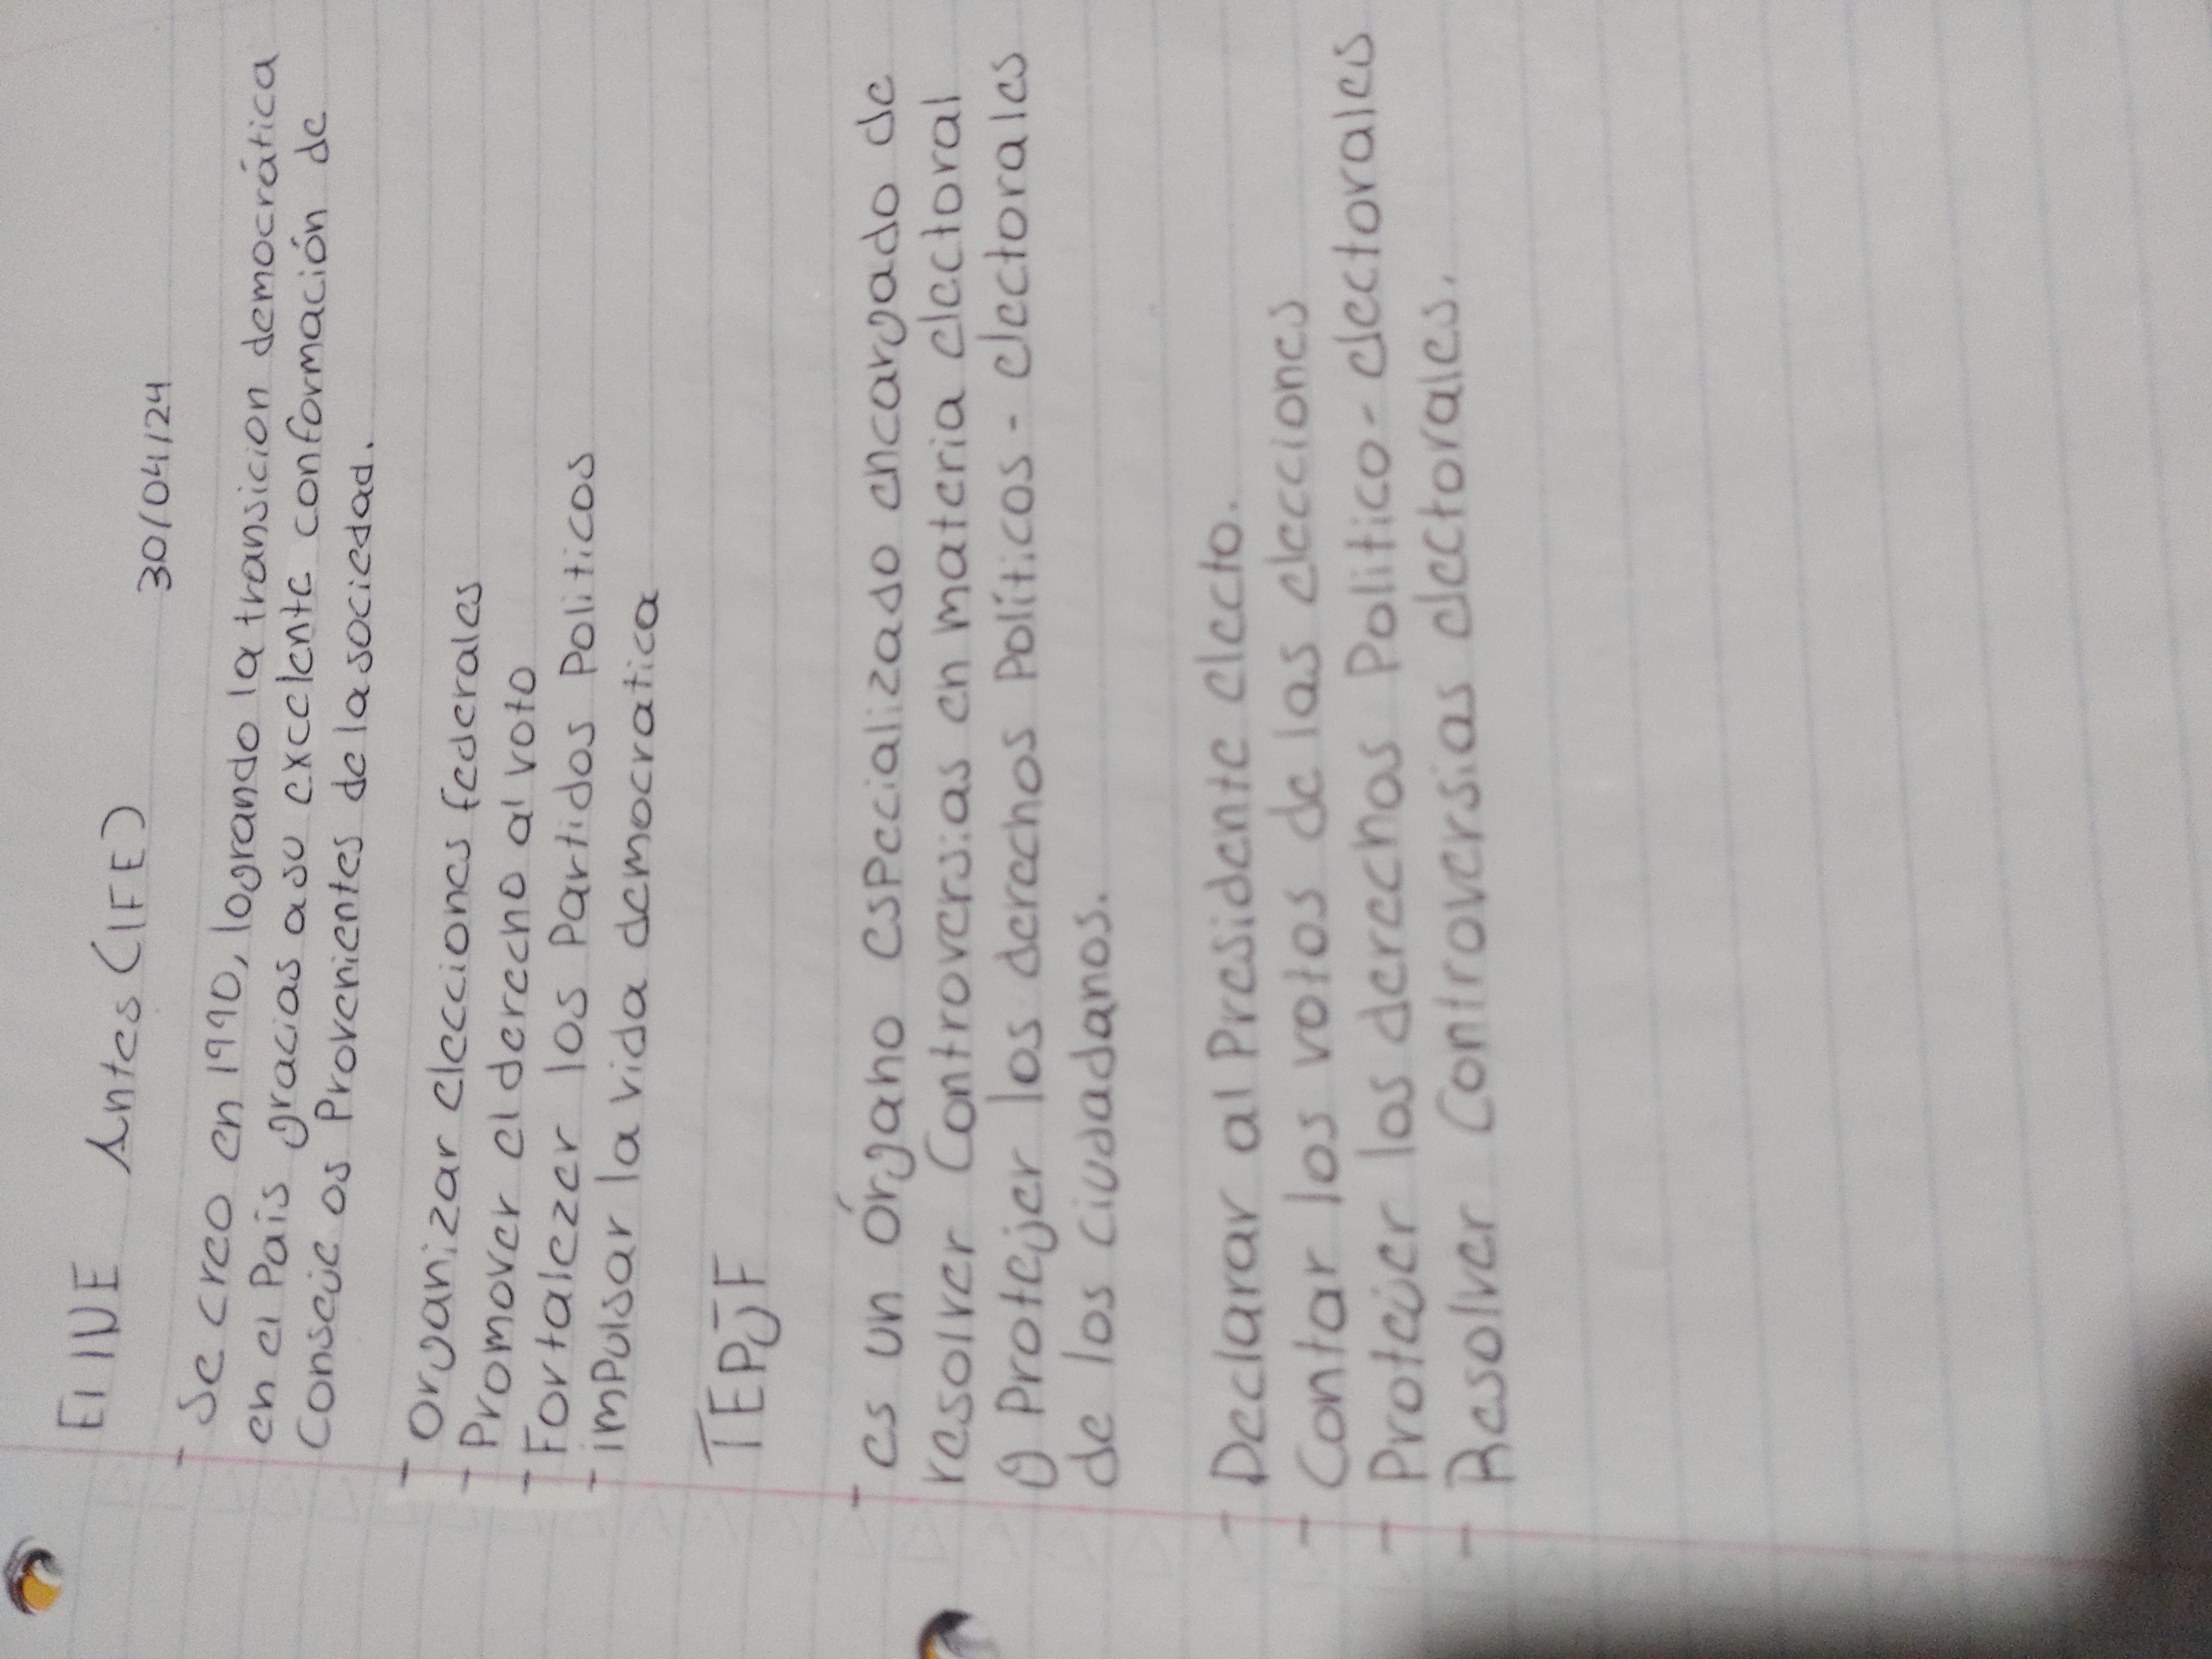 El INE Antes (IFE)
30/04/24
- Se creo en 1990, logrando la transicion democrática
en el País gracias a su excelente conformación de
Conseje os Provenientes de la sociedad.
- Organizar elecciones federales
- Promover el derecho al voto
- Fortalezer los Partidos Politicos
- impulsar la vida democratica
TEPJF
- es un Órgano esPecializado encargado de
resolver Controversias en materia electoral
y Protejer los derechos Políticos - electorales
de los ciudadanos.
- Declarar al Presidente electo.
- Contar los votos de las elecciones
- Protejer los derechos Politico - electorales
- Resolver Controversias electorales.